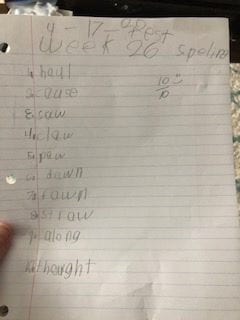 4-17-20
Week 26 spelling test
10/10
1. haul
2. cause
3. saw
4. claw
5. paw
6. dawn
7. fawn
8. straw
9. along
10. thought